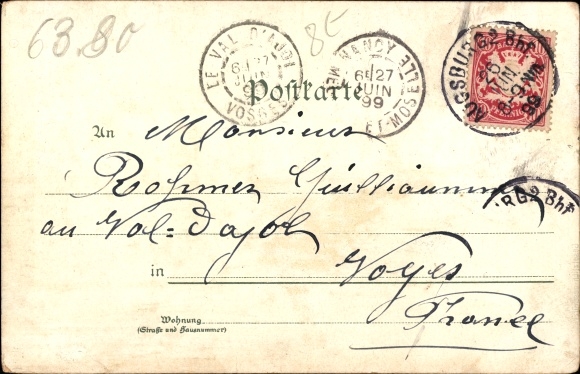 63.80
85
LE VAL D'AJOL
6E/27
JUIN
99
VOSGES
NANCY
6E/27
JUIN
99
MEURTHE ET MOSELLE
AUGSBURG 2 Bhf
26
JUN
99
Postkarte
An Monsieur
Rohmer Guilliaumme
RG 2 Bhf
au Val=Dajol
in Voges
France
Wohnung
(Straße und Hausnummer)